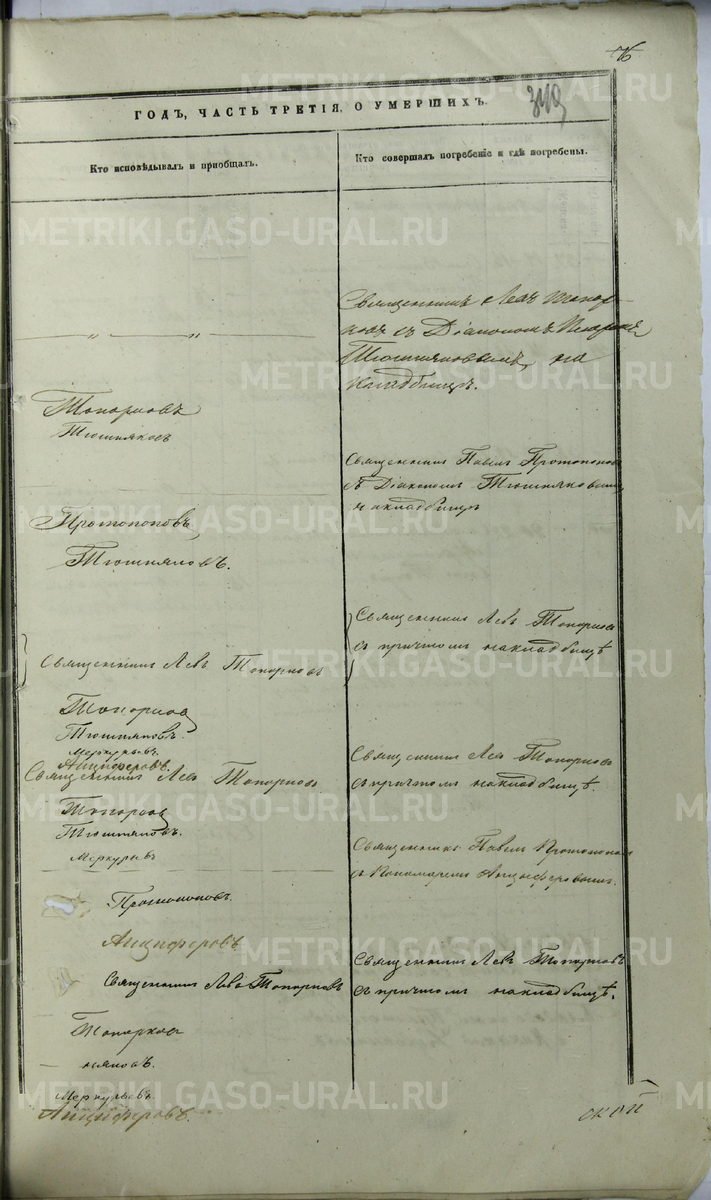 76
ГОДЪ, ЧАСТЬ ТРЕТІЯ, О УМЕРШИХЪ.
349
Кто исповѣдывалъ и пріобщалъ.
Кто совершалъ погребеніе и гдѣ погребены.
METRIKI.GASO-URAL.RU
Священникъ Левъ Топор-
ковъ съ Діакономъ
Тюшняковымъ, на
Кладбищѣ.
Топорковъ
Тюшняковъ
Священникъ Павелъ Протопоповъ
съ Діакономъ Тюшняковымъ
на кладбищѣ
Протопоповъ
Тюшняковъ.
Священникъ Левъ Топорковъ
съ причтомъ на кладбищѣ
Священникъ Левъ Топорковъ
Топорковъ
Тюшняковъ.
Меркурьевъ.
Анциферовъ.
Священникъ Левъ Топорковъ
Священникъ Левъ Топорковъ
съ причтомъ на кладбищѣ.
Топорковъ
Тюшняковъ.
Меркурьевъ
Священникъ Павелъ Протопоповъ
съ Пономаремъ Анциферовымъ.
Протопоповъ.
Анциферовъ.
Священникъ Левъ Топорковъ
Священникъ Левъ Топорковъ
съ причтомъ на кладбищѣ.
Топорковъ
няковъ.
Меркурьевъ.
Анциферовъ.